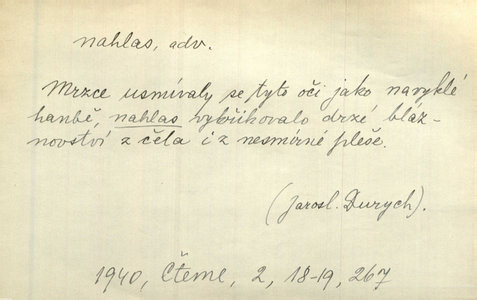 nahlas, adv.
Mrzce usmívaly se tyto oči jako navyklé
hanbě, nahlas vykřikovalo drzé bláz-
novství z čela i z nesmírné pleše.
(Jarosl. Durych).
1940, Čteme, 2, 18-19, 267